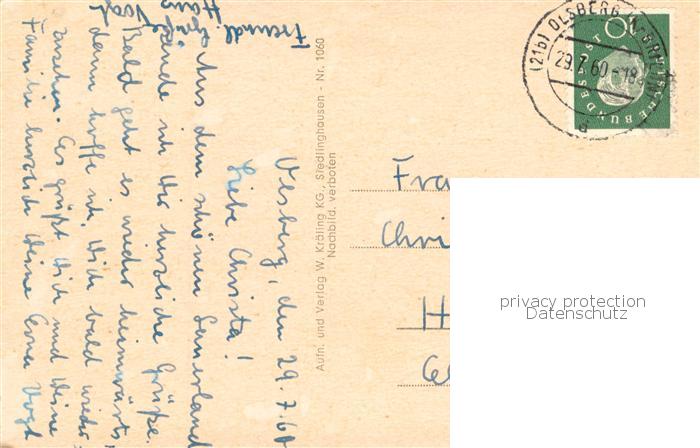 Olsberg, den 29.7.60
Liebe Christa!
Aus dem schönen Sauerland
sende ich Dir herzliche Grüße.
Bald geht es wieder heimwärts,
dann hoffe ich, Dich bald wieder zu
sehen. Es grüßt Dich und Deine
Familie herzlich Deine Erna Vogt
Freundl. Grüße
Hans
Vogt
Aufn. und Verlag W. Kröling KG., Siedlinghausen - Nr. 1060
Nachbild. verboten
(21b) OLSBERG
29.7.60-18
a
DEUTSCHE BUNDESPOST
10
Fra
Chri
H
privacy protection
Datenschutz